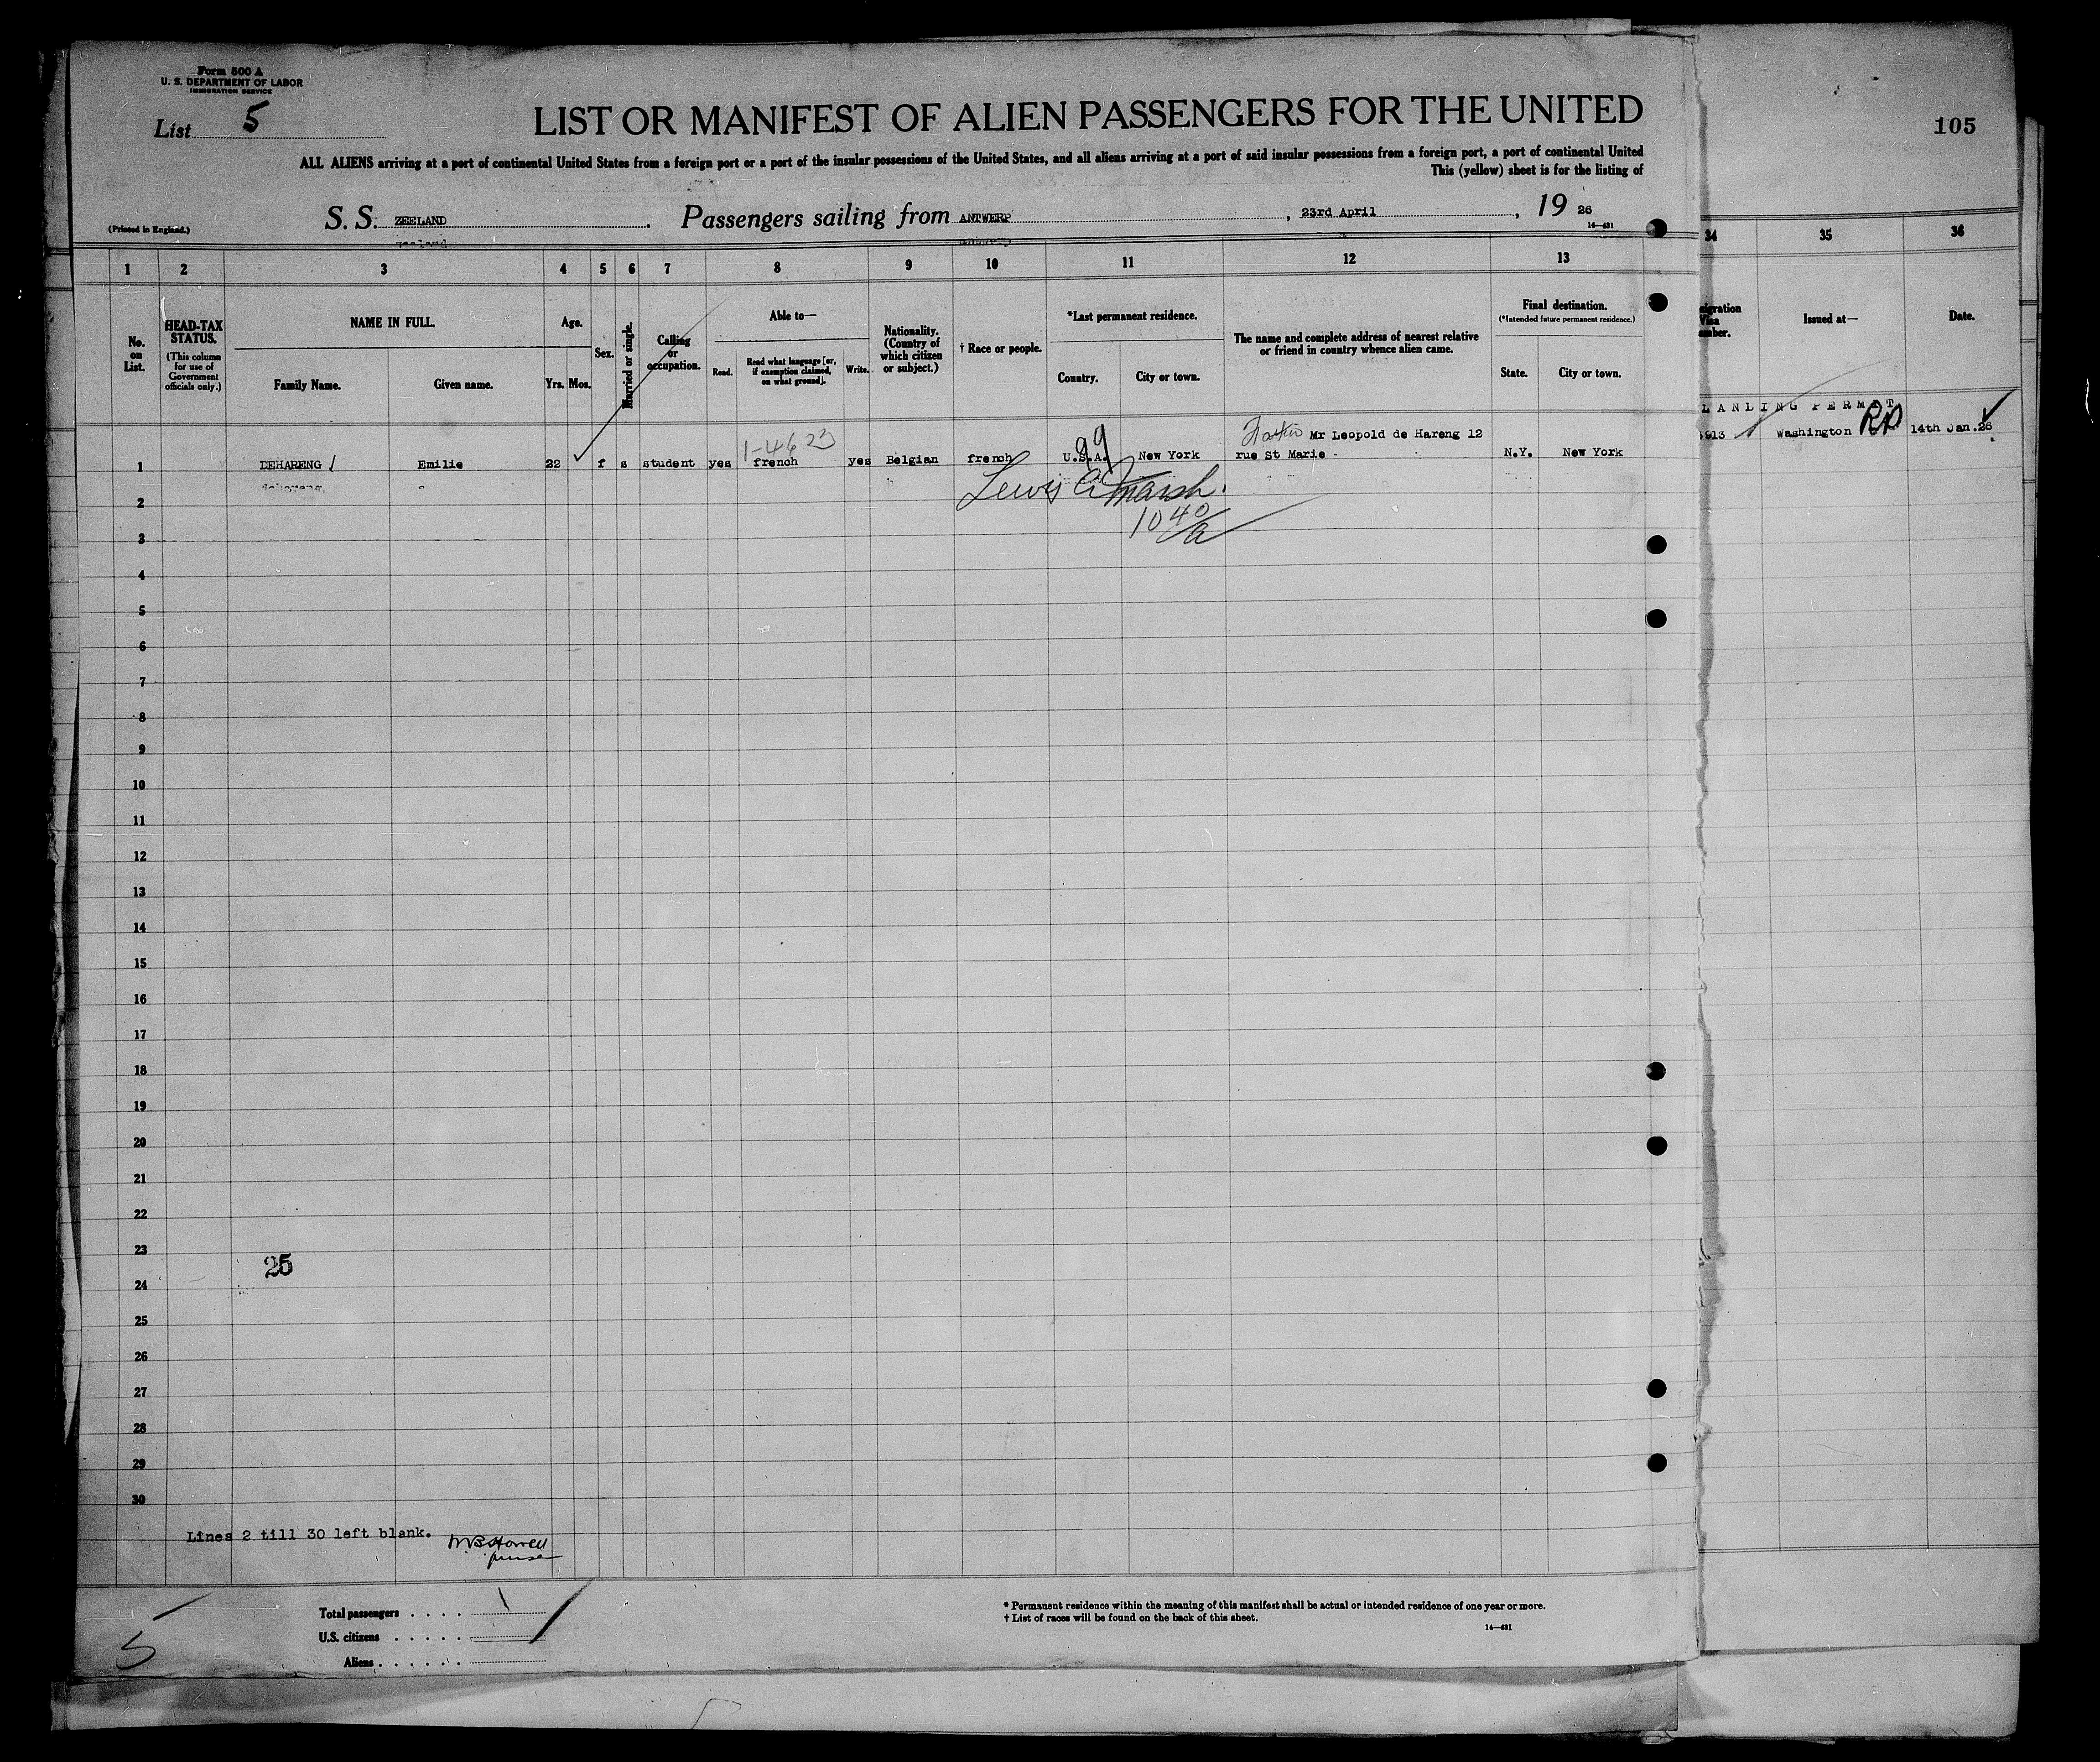 Form 500 A
U. S. DEPARTMENT OF LABOR
IMMIGRATION SERVICE
List 5
LIST OR MANIFEST OF ALIEN PASSENGERS FOR THE UNITED
105
ALL ALIENS arriving at a port of continental United States from a foreign port or a port of the insular possessions of the United States, and all aliens arriving at a port of said insular possessions from a foreign port, a port of continental United
This (yellow) sheet is for the listing of
(Printed in England.)
S. S. ZEELAND. Passengers sailing from ANTWERP, 23rd April, 19 26
14—431
1 2 3 4 5 6 7 8 9 10 11 12 13 34 35 36
No. on List.
HEAD-TAX STATUS.
(This column for use of Government officials only.)
NAME IN FULL.
Family Name. Given name.
Age.
Yrs. Mos.
Sex.
Married or single.
Calling or occupation.
Able to—
Read. Read what language [or, if exemption claimed, on what ground]. Write.
Nationality. (Country of which citizen or subject.)
† Race or people.
*Last permanent residence.
Country. City or town.
The name and complete address of nearest relative or friend in country whence alien came.
Final destination.
(*Intended future permanent residence.)
State. City or town.
Issued at—
Date.
LANDING PERMIT
1-4623
99
Mr Leopold de Hareng 12
913 Washington RD 14th Jan.26
1 DEHARENG Emilie 22 f s student yes french yes Belgian french U.S.A. New York rue St Marie - N.Y. New York
Lewis A Marsh.
1040/a
2
3
4
5
6
7
8
9
10
11
12
13
14
15
16
17
18
19
20
21
22
23
25
24
25
26
27
28
29
30
Lines 2 till 30 left blank.
Total passengers . . . . 1
U.S. citizens . . . . .
Aliens . . . . . .
5
* Permanent residence within the meaning of this manifest shall be actual or intended residence of one year or more.
† List of races will be found on the back of this sheet.
14—431